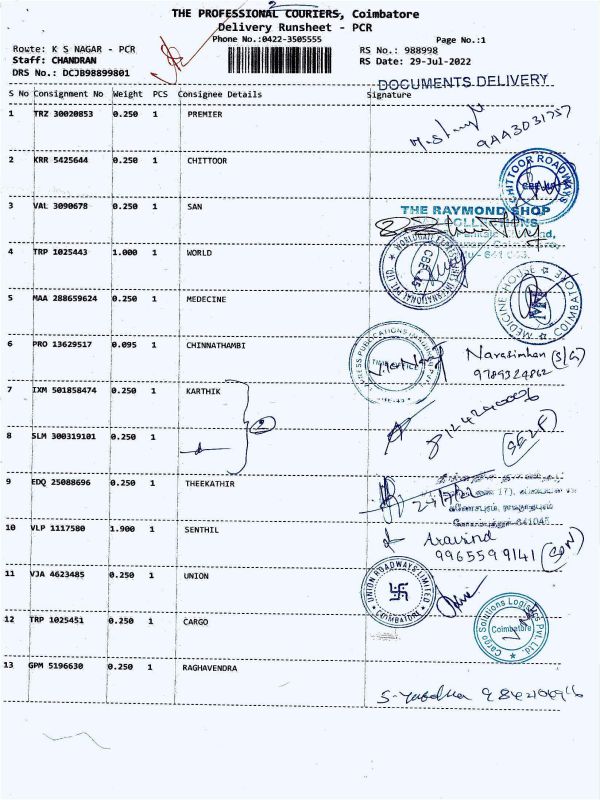 THE PROFESSIONAL COURIERS, Coimbatore
Delivery Runsheet - PCR
Phone No.:0422-3505555
Page No.:1
Route: K S NAGAR - PCR
RS No.: 988998
Staff: CHANDRAN
RS Date: 29-Jul-2022
DRS No.: DCJB98899801
DOCUMENTS DELIVERY
S No Consignment No Weight PCS Consignee Details Signature
1 TRZ 30020853 0.250 1 PREMIER
9AA3031757
2 KRR 5425644 0.250 1 CHITTOOR
CHITTOOR ROADWAYS
3 VAL 3090678 0.250 1 SAN
THE RAYMOND SHOP
4 TRP 1025443 1.000 1 WORLD
CBE-45
5 MAA 288659624 0.250 1 MEDECINE
MEDICINE HOUSE COIMBATORE
6 PRO 13629517 0.095 1 CHINNATHAMBI
Narasimhan (S/G)
9789324862
7 IXM 501858474 0.250 1 KARTHIK
2
8124290006
8 SLM 300319101 0.250 1
SELF
9 EDQ 25088696 0.250 1 THEEKATHIR
641045
10 VLP 1117580 1.900 1 SENTHIL
Aravind
9965599141 (SON)
11 VJA 4623485 0.250 1 UNION
UNION ROADWAYS LIMITED
COIMBATORE
12 TRP 1025451 0.250 1 CARGO
Cargo Solutions Logistics Pvt. Ltd.
Coimbatore
13 GPM 5196630 0.250 1 RAGHAVENDRA